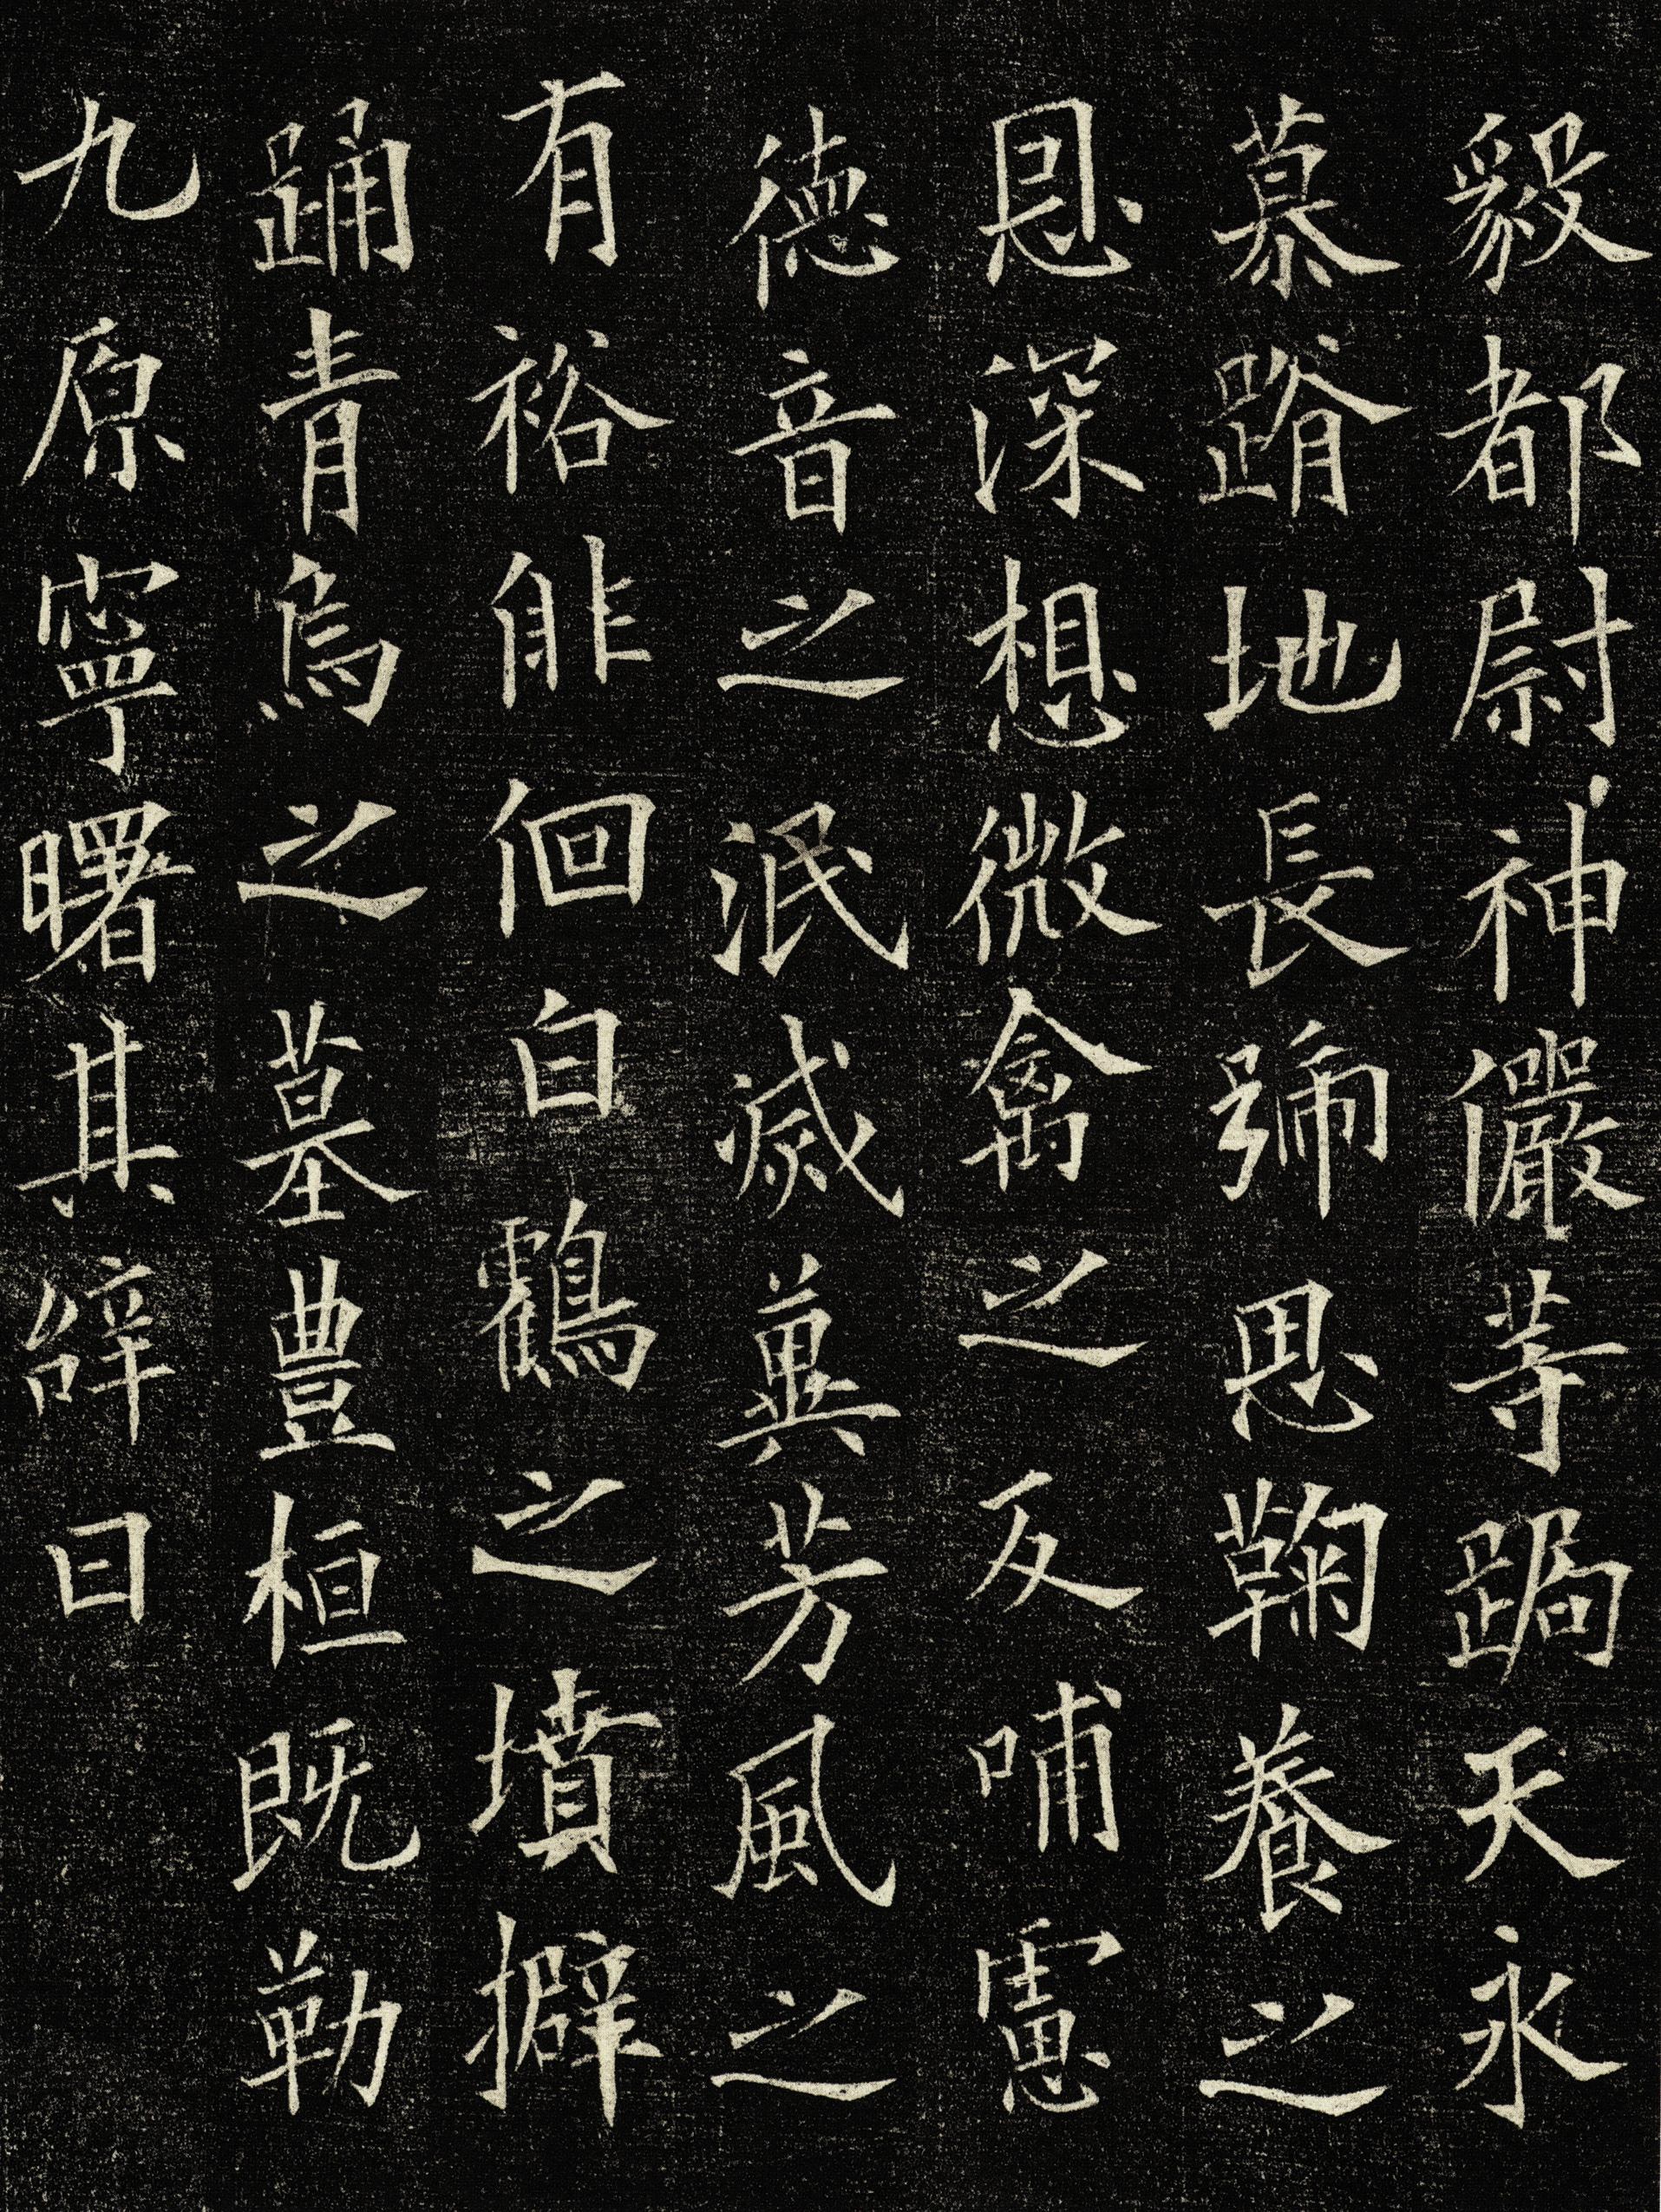 毅都尉神儼等跼天永
慕蹐地長號思鞠養之
恩深想微禽之反哺慮
德音之泯滅冀芳風之
有裕俳佪白鸖之墳擗
踊青烏之墓豊桓既勒
九原寧曙其辝曰